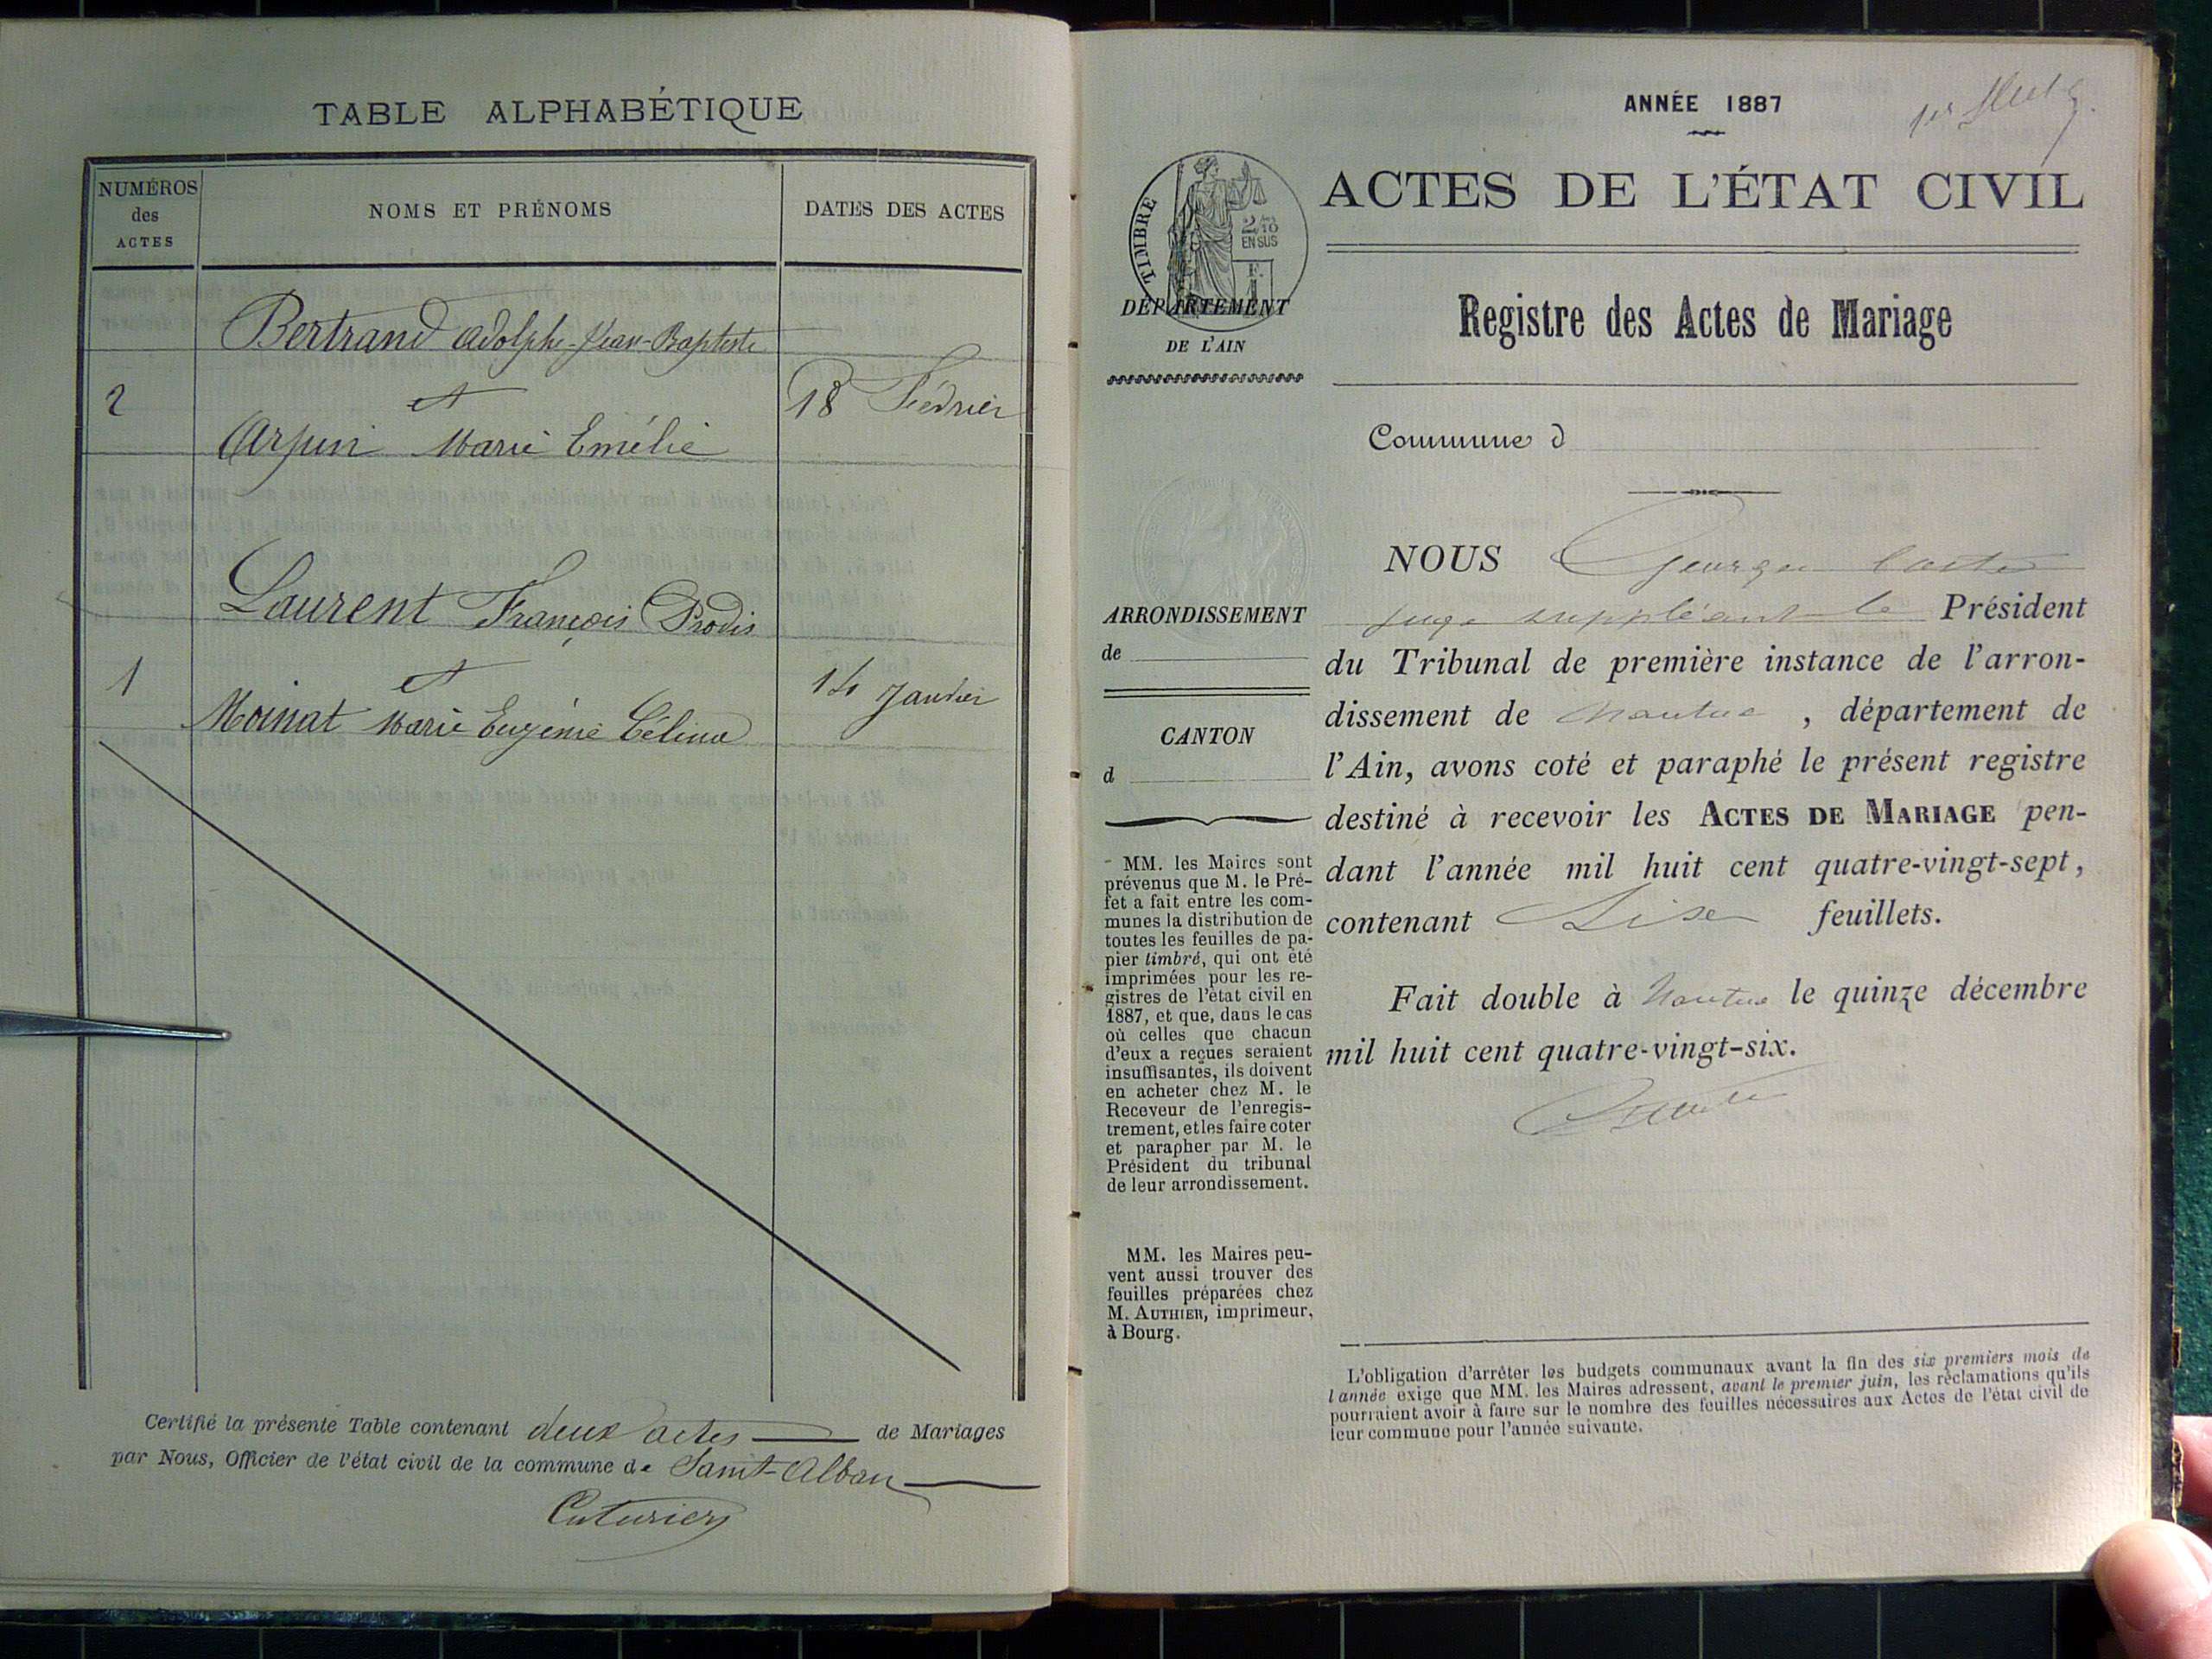 TABLE ALPHABÉTIQUE
NUMÉROS
des
ACTES
NOMS ET PRÉNOMS
DATES DES ACTES
Bertrand Adolphe-Jean-Baptiste
2
et
18 Février
Arpin Marie Emélie
Laurent François Prodis
1
et
14 Janvier
Moinat Marie Eugénie Célina
Certifié la présente Table contenant deux actes de Mariages
par Nous, Officier de l'état civil de la commune de Saint-Alban
Cuturier
ANNÉE 1887
1er
ACTES DE L'ÉTAT CIVIL
TIMBRE
2/10
EN SUS
F.
DÉPARTEMENT
DE L'AIN
Registre des Actes de Mariage
Commune d
NOUS Georges
juge suppléant le Président
ARRONDISSEMENT
de
du Tribunal de première instance de l'arron-
dissement de Nantua, département de
CANTON
d
l'Ain, avons coté et paraphé le présent registre
destiné à recevoir les ACTES DE MARIAGE pen-
dant l'année mil huit cent quatre-vingt-sept,
contenant feuillets.
Fait double à Nantua le quinze décembre
mil huit cent quatre-vingt-six.
MM. les Maires sont
prévenus que M. le Pré-
fet a fait entre les com-
munes la distribution de
toutes les feuilles de pa-
pier timbré, qui ont été
imprimées pour les re-
gistres de l'état civil en
1887, et que, dans le cas
où celles que chacun
d'eux a reçues seraient
insuffisantes, ils doivent
en acheter chez M. le
Receveur de l'enregis-
trement, et les faire coter
et parapher par M. le
Président du tribunal
de leur arrondissement.
MM. les Maires peu-
vent aussi trouver des
feuilles préparées chez
M. AUTHIER, imprimeur,
à Bourg.
L'obligation d'arrêter les budgets communaux avant la fin des six premiers mois de
l'année exige que MM. les Maires adressent, avant le premier juin, les réclamations qu'ils
pourraient avoir à faire sur le nombre des feuilles nécessaires aux Actes de l'état civil de
leur commune pour l'année suivante.